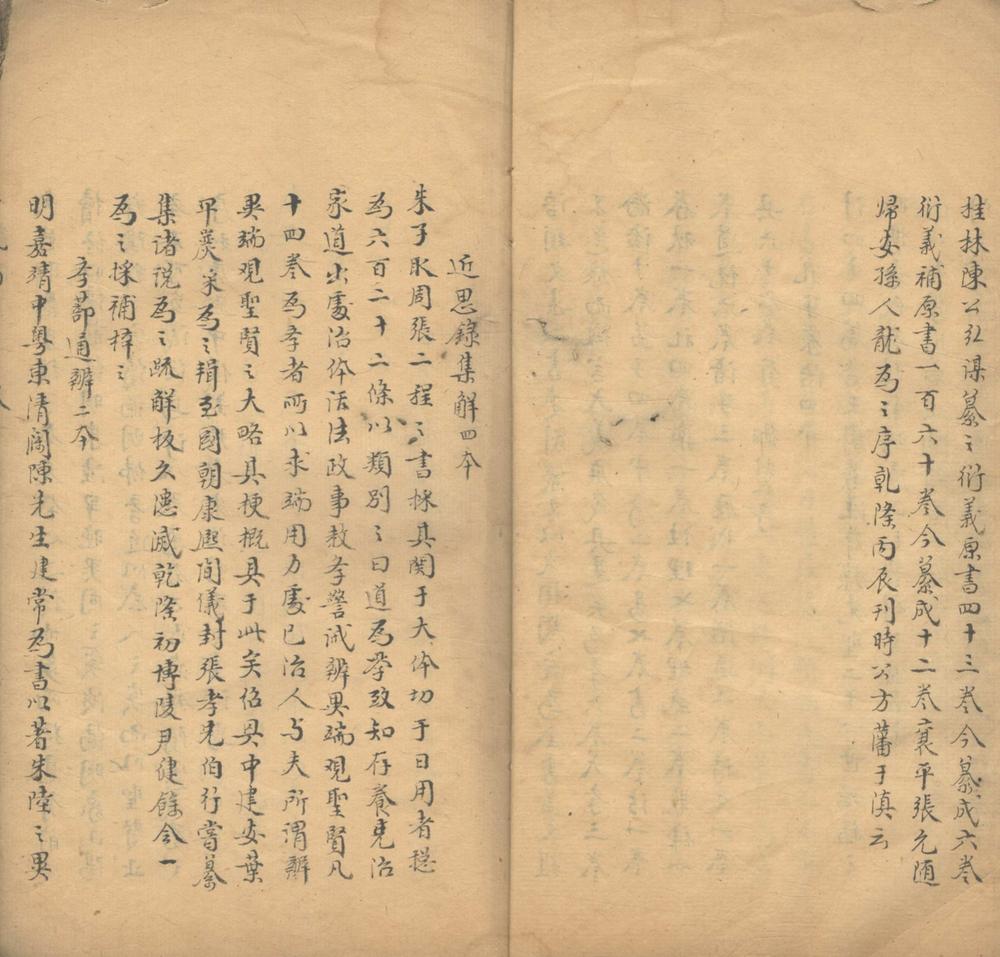 桂林陳公弘谋纂之衍義原書四十三卷今纂成六卷
衍義補原書一百六十卷今纂成十二卷襄平張允随
帰安孫人龍為之序乾隆丙辰刊時公方藩于滇云
近思錄集解四本
朱子取周張二程之書採其関于大体切于日用者
為六百二十二條以類別之曰道為學致知存養克治
家道出處治体活法政事教學警誡辨異端观聖賢凡
十四卷為學者所以求端用力處己治人与夫所谓辨
異端观聖賢之大略具梗概具于此矣
中建安葉
平巖采為之
至國朝康熙间儀封張孝先伯行嘗纂
集诸说為之疏解板久漶滅乾隆初博陵尹健餘会一
為之採補梓之
學蔀通辨二本
明嘉靖中粤東清闌陳先生建常為書以著朱陸之異